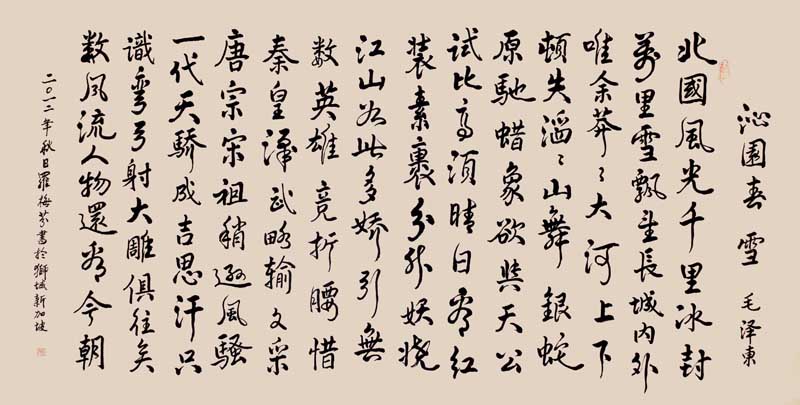 沁園春 雪 毛泽東
北國風光千里冰封
萬里雪飄望長城内外
唯余莽〻大河上下
頓失滔〻山舞銀蛇
原馳蜡象欲與天公
試比高須晴日看紅
装素裹分外妖娆
江山如此多娇引無
数英雄竟折腰惜
秦皇漢武略输文采
唐宗宋祖稍遜風騷
一代天驕成吉思汗只
識彎弓射大雕俱往矣
数风流人物還看今朝
二〇一二年秋日羅梅芬書於獅城新加坡